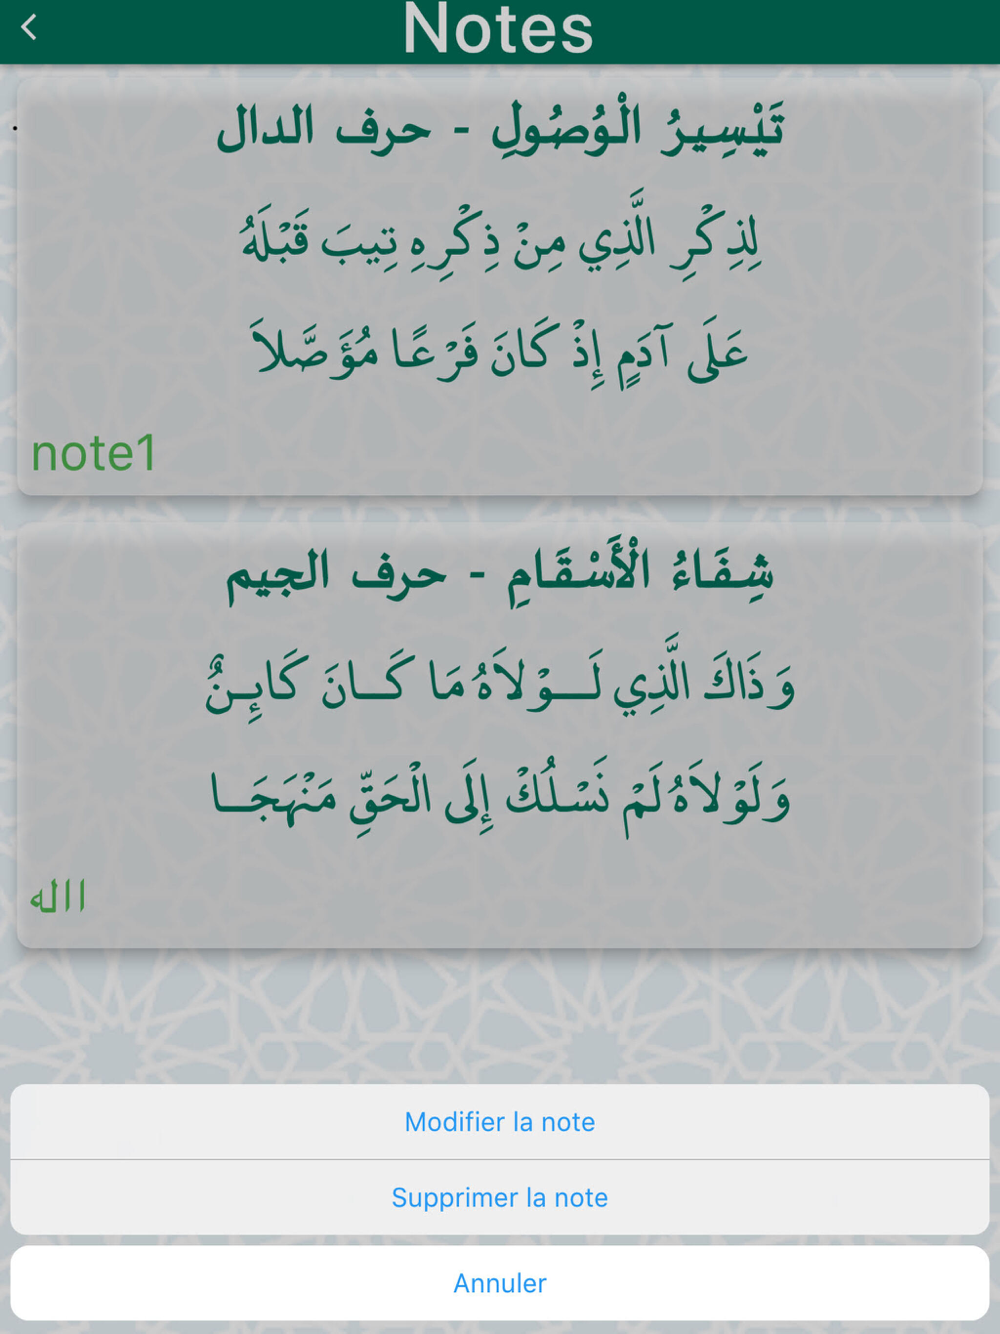 Notes
تَيْسِيرُ الْوُصُولِ - حرف الدال
لِذِكْرِ الَّذِي مِنْ ذِكْرِهِ تِيبَ قَبْلَهُ
عَلَى آدَمٍ إِذْ كَانَ فَرْعًا مُؤَصَّلاَ
note1
شِفَاءُ الْأَسْقَامِ - حرف الجيم
وَذَاكَ الَّذِي لَـــوْلاَهُ مَا كَـــانَ كَائِنٌ
وَلَوْلاَهُ لَمْ نَسْلُكْ إِلَى الْحَقِّ مَنْهَجَـــا
االه
Modifier la note
Supprimer la note
Annuler